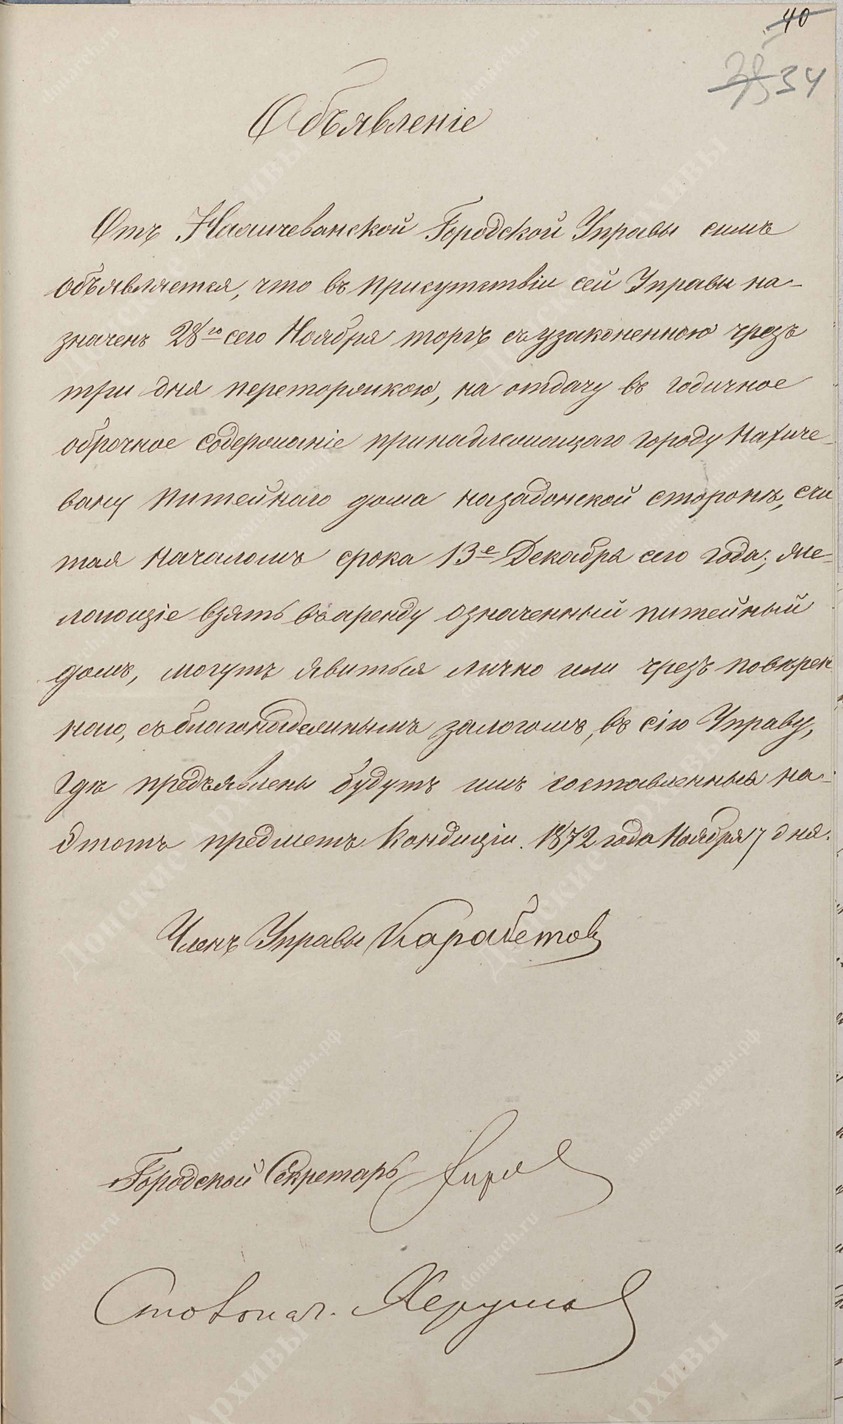 40
38 34
Объявленіе
Отъ Нахичеванской Городской Управы симъ
объявляется, что въ присутствіи сей Управы на-
значенъ 28го сего Ноября торгъ съ узаконенною чрезъ
три дня переторжкою, на отдачу въ годичное
оброчное содержаніе принадлежащаго городу Нахиче-
вану питейнаго дома на задонской сторонѣ, счи
тая началомъ срока 13е Декабря сего года; же-
лающіе взять въ аренду означенный питейный
домъ, могутъ явиться лично или чрезъ повѣрен
наго, съ благонадежнымъ залогомъ, въ сію Управу,
гдѣ предъявлены будутъ имъ составленныя на-
этотъ предметъ кондиціи. 1872 года Ноября 7 дня.
Членъ Управы Карабетов
Городской Секретарь
Столонач.